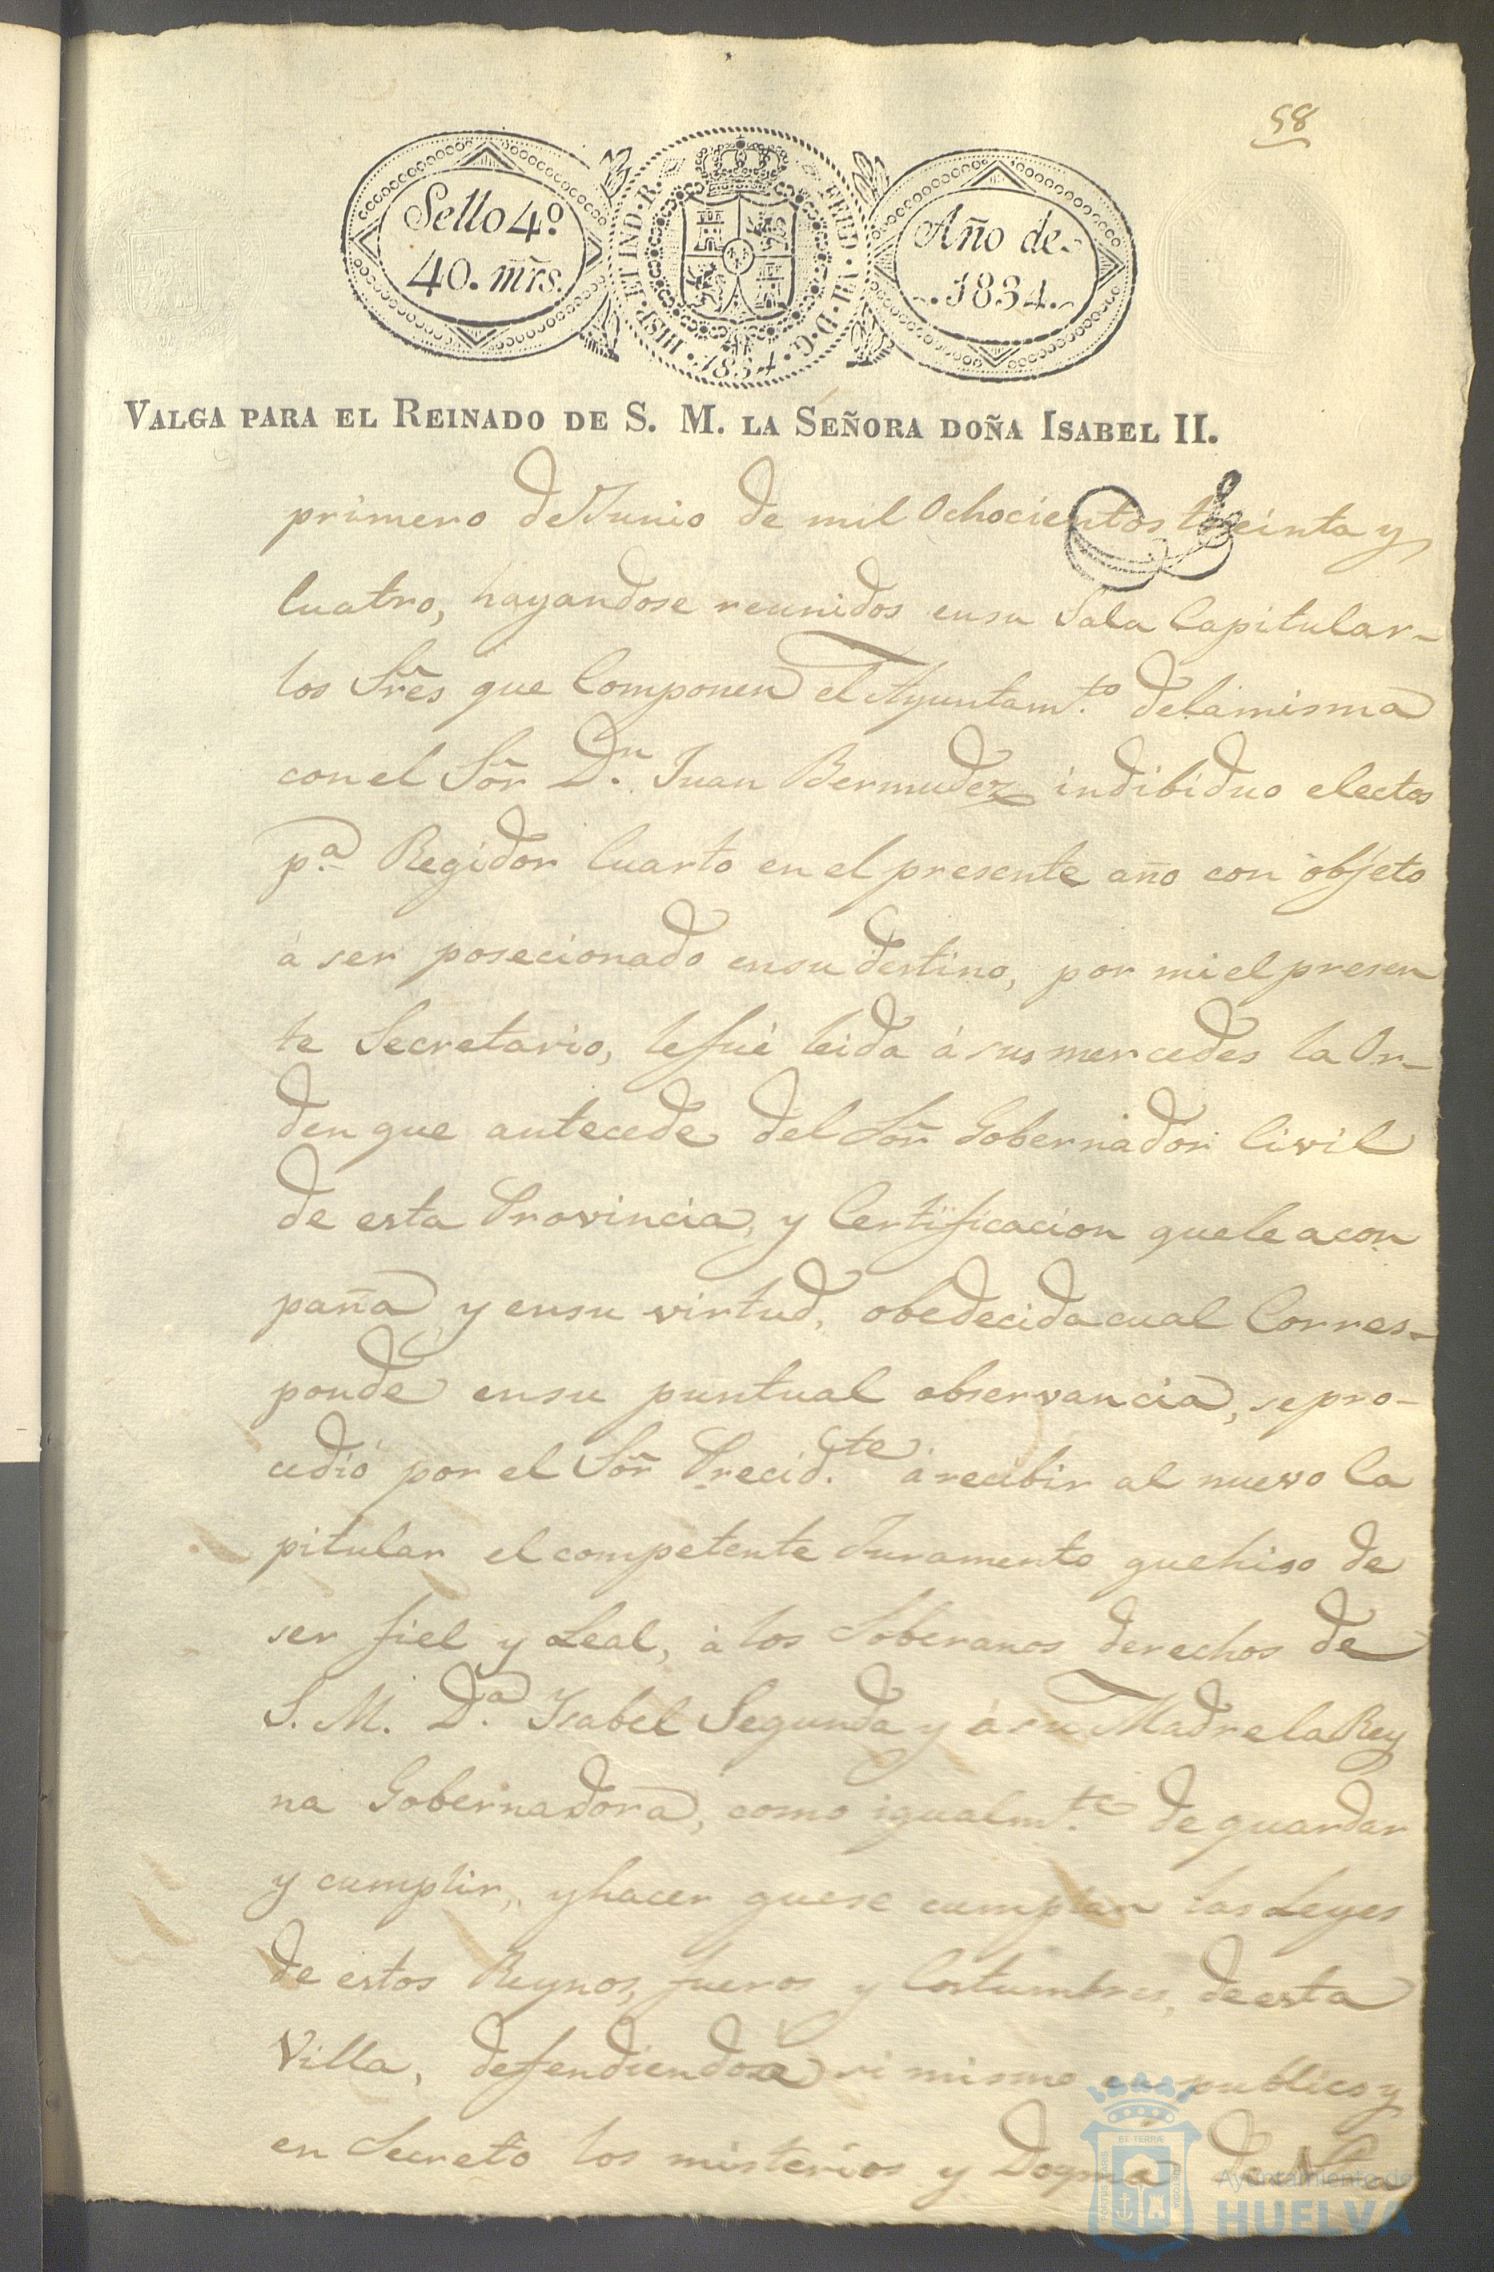 58
Sello 4.º
40. mrs.
HISP. ET IND. R.
FERD. VII. D. G.
1834
Año de
1834.
VALGA PARA EL REINADO DE S. M. LA SEÑORA DOÑA ISABEL II.
primero de Junio de mil Ochocientos treinta y
Cuatro, hayandose reunidos en su Sala Capitular
los Sres que Componen el Ayuntam.to de la misma
con el Sor D.n Juan Bermudez indibiduo electos
p.a Regidor Cuarto en el presente año con objeto
á ser posecionado en su destino, por mi el presen
te Secretario, le fué leida á sus mercedes la Or-
den que antecede del Sor Gobernador Civil
de esta Provincia, y Certificacion que le acon
paña y en su virtud, obedecida cual Corres-
ponde en su puntual observancia, se pro-
cedió por el Sor Precid.te á recibir al nuevo Ca
pitular el competente Juramento que hiso de
ser fiel y Leal, á los Soberanos derechos de
S. M. D.a Isabel Segunda y á su Madre la Rey
na Gobernadora, como igualm.te de guardar
y cumplir, y hacer que se cumplan las Leyes
de estos Reynos, fueros y Costumbres, de esta
Villa, defendiendo á si mismo en publico y
en Secreto los misterios y Dogma de Ntra
Ayuntamiento de
HUELVA